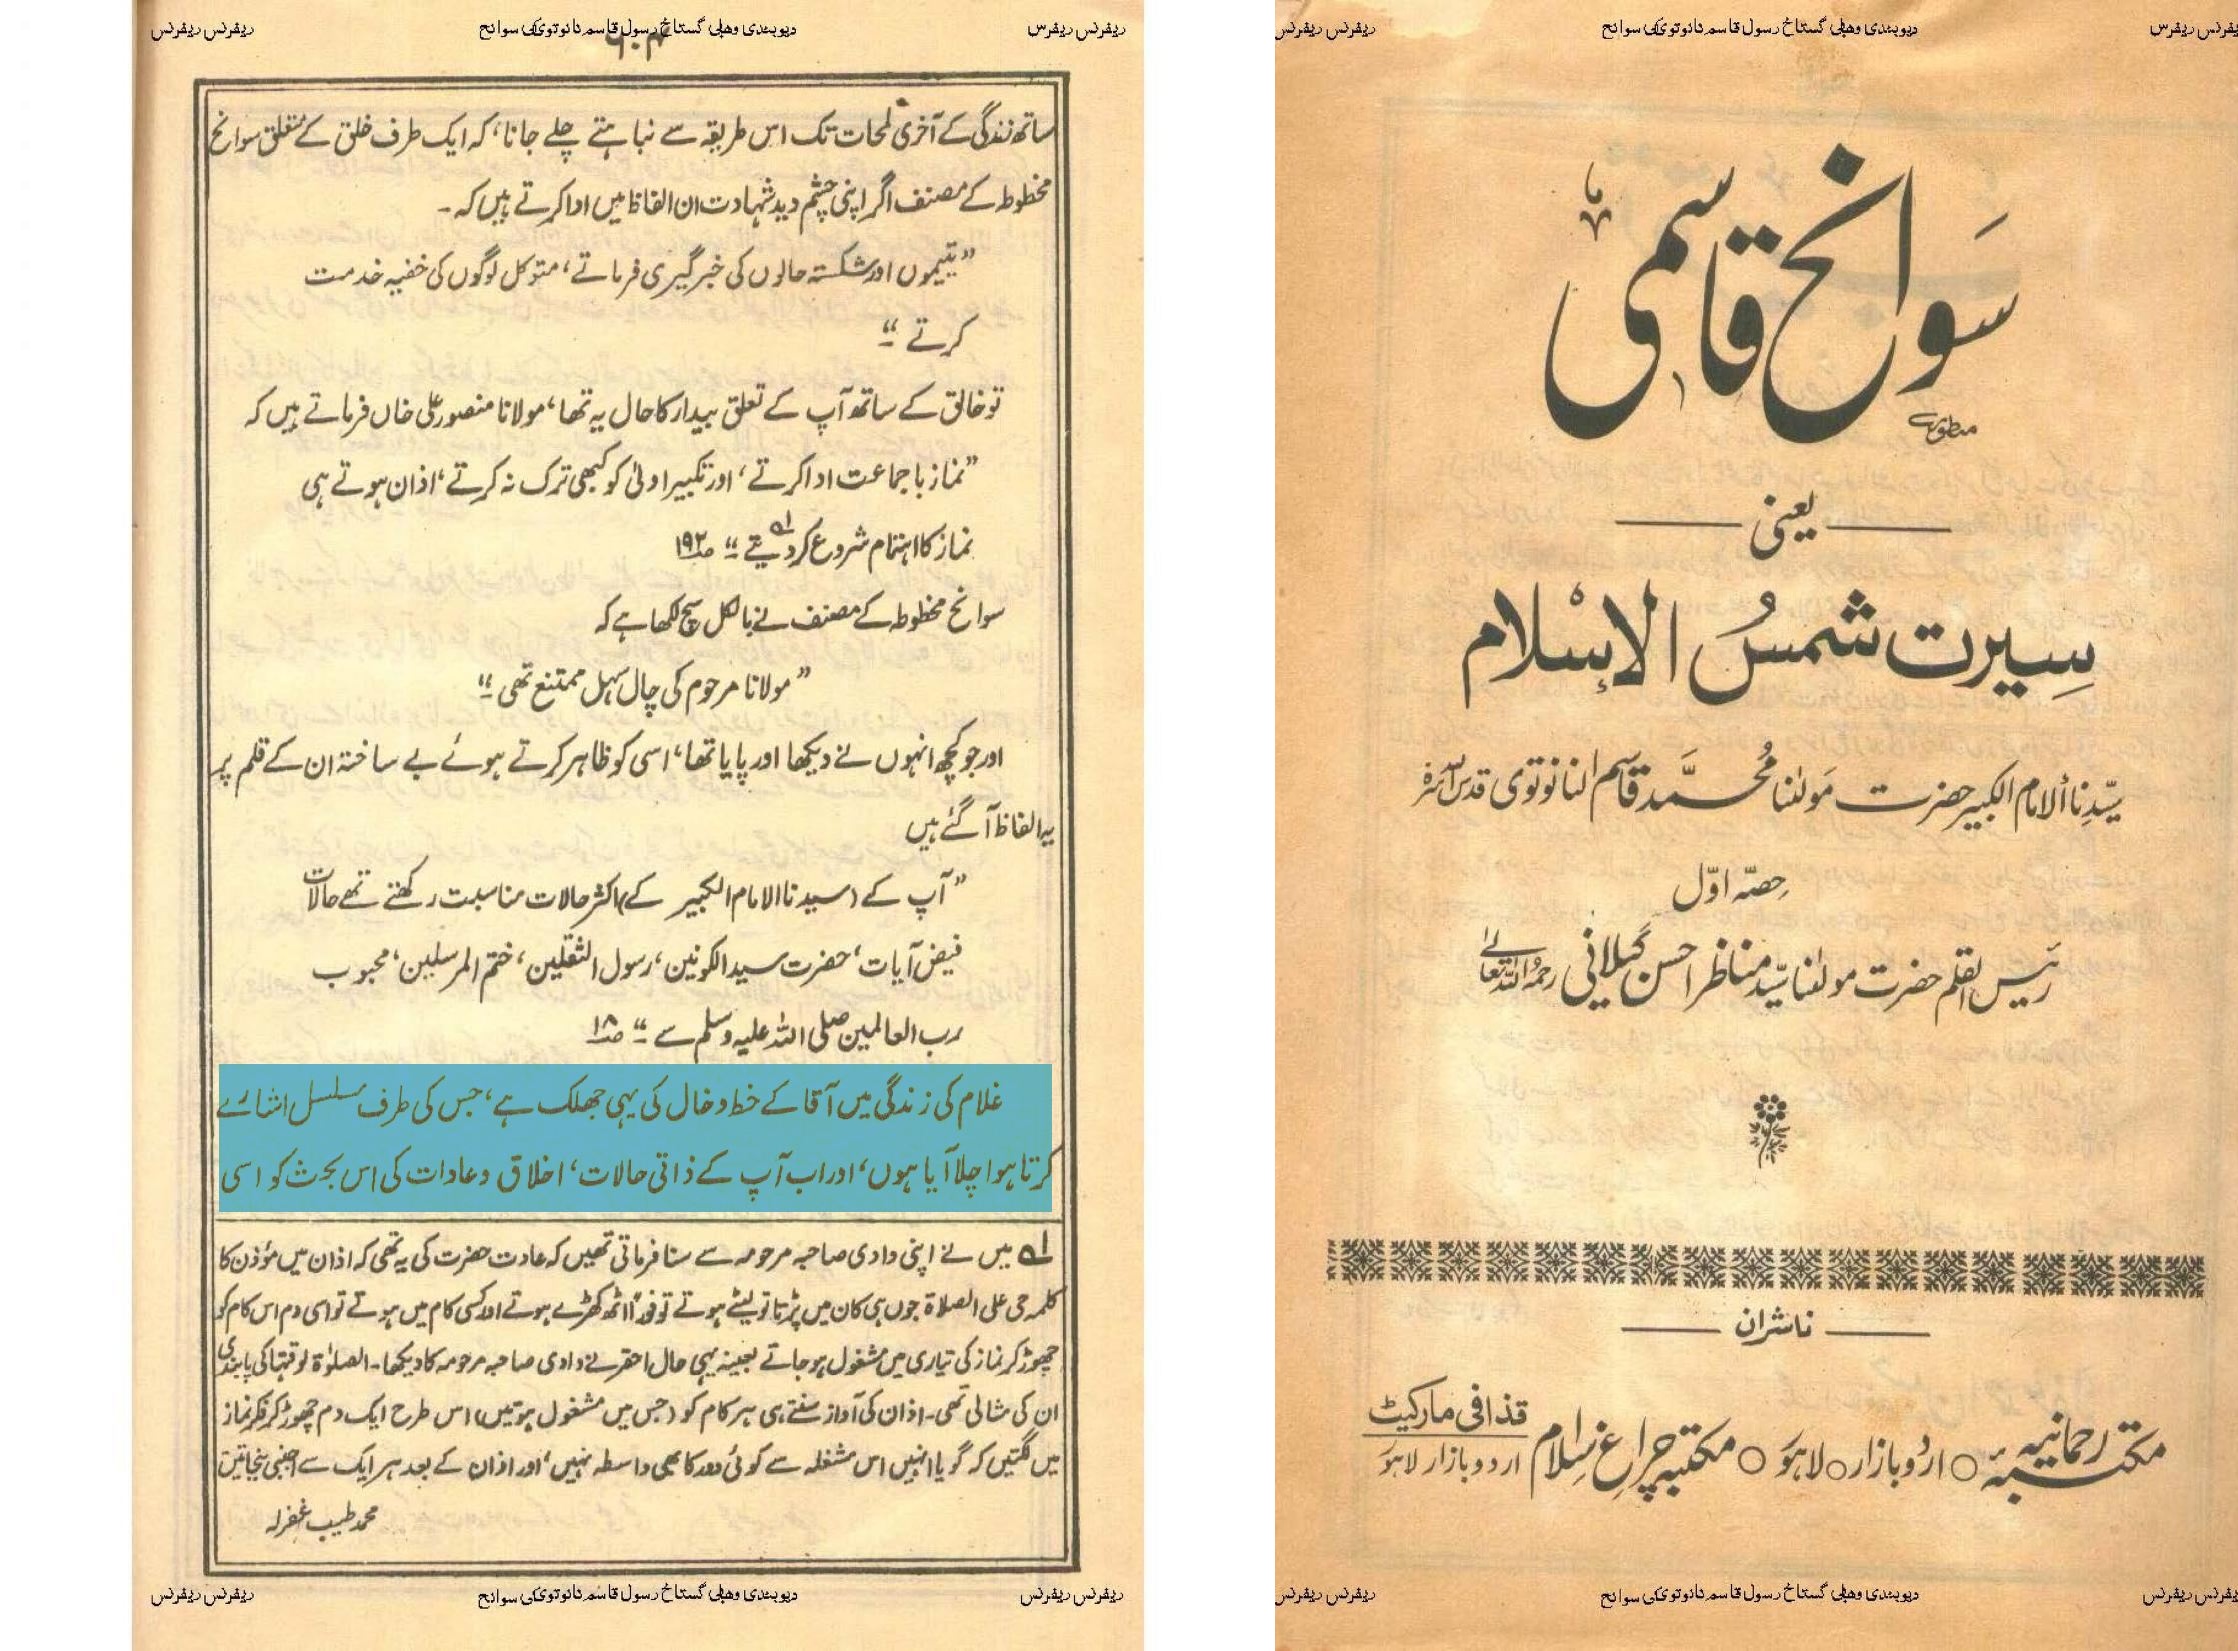 ریفرنس ریفرس
دیوبندی وھابی گستاخ رسول قاسم نانوتوی کی سوانح
ریفرنس ریفرنس
سوانح قاسمی
یعنی
سیرت شمسُ الاِسْلام
سیّدِنا ألامام الکبیر حضرت مَولٰنا مُحَمَّد قاسم النانوتوی قدس اللہ سرہٗ
حِصّہ اوّل
رئیس القلم حضرت مولٰنا سیّد مناظر احسن گیلانی رحمۃُ اللہ تعالےٰ
ناشران
مکتبۂ رحمانیہ ○ اردو بازار ○ لاہور ○ مکتبہ چراغ اسلام قذافی مارکیٹ اردو بازار لاہور
ریفرنس ریفرنس
دیوبندی وھابی گستاخ رسول قاسم نانوتوی کی سوانح
ریفرنس ریفرنس
ریفرنس ریفرس
دیوبندی وھابی گستاخ رسول قاسم نانوتوی کی سوانح
ریفرنس ریفرنس
ساتھ زندگی کے آخری لمحات تک اس طریقہ سے نباہتے چلے جانا، کہ ایک طرف خلق کے متعلق سوانح
مخطوطہ کے مصنف اگر اپنی چشم دید شہادت ان الفاظ میں ادا کرتے ہیں کہ۔
”یتیموں اور شکستہ حالوں کی خبر گیری فرماتے، متوکل لوگوں کی خفیہ خدمت
کرتے“
تو خالق کے ساتھ آپ کے تعلق بیدار کا حال یہ تھا، مولانا منصور علی خاں فرماتے ہیں کہ
”نماز با جماعت ادا کرتے، اور تکبیر اولیٰ کو کبھی ترک نہ کرتے، اذان ہوتے ہی
نماز کا اہتمام شروع کر دیتے“ ؎۱ ص۱۹۲
سوانح مخطوطہ کے مصنف نے بالکل سچ لکھا ہے کہ
”مولانا مرحوم کی چال سہل ممتنع تھی“
اور جو کچھ انہوں نے دیکھا اور پایا تھا، اسی کو ظاہر کرتے ہوئے بے ساختہ ان کے قلم پر
یہ الفاظ آگئے ہیں
”آپ کے (سیدنا الامام الکبیر کے) اکثر حالات مناسبت رکھتے تھے حالات
فیض آیات، حضرت سید الکونین، رسول الثقلین، ختم المرسلین، محبوب
رب العالمین صلی اللہ علیہ وسلم سے“ ص۱۸
غلام کی زندگی میں آقا کے خط و خال کی یہی جھلک ہے، جس کی طرف مسلسل اشارے
کرتا ہوا چلا آیا ہوں، اور اب آپ کے ذاتی حالات، اخلاق و عادات کی اس بحث کو اسی
؎۱ میں نے اپنی دادی صاحبہ مرحومہ سے سنا فرماتی تھیں کہ عادت حضرت کی یہ تھی کہ اذان میں مؤذن کا
کلمہ حی علی الصلاۃ جوں ہی کان میں پڑتا تو لیٹے ہوتے تو فوراً اٹھ کھڑے ہوتے اور کسی کام میں ہوتے تو اسی دم اس کام کو
چھوڑ کر نماز کی تیاری میں مشغول ہو جاتے بعینہ یہی حال احقر نے دادی صاحبہ مرحومہ کا دیکھا۔ الصلوٰۃ لوقتہا کی پابندی
ان کی مثالی تھی۔ اذان کی آواز سنتے ہی ہر کام کو (جس میں مشغول ہوتیں) اس طرح ایک دم چھوڑ کر فکر نماز
میں لگتیں کہ گویا انہیں اس مشغلہ سے کوئی دور کا بھی واسطہ نہیں، اور اذان کے بعد ہر ایک سے اجنبی بنجاتیں
محمد طیب غفرلہ
ریفرنس ریفرنس
دیوبندی وھابی گستاخ رسول قاسم نانوتوی کی سوانح
ریفرنس ریفرنس